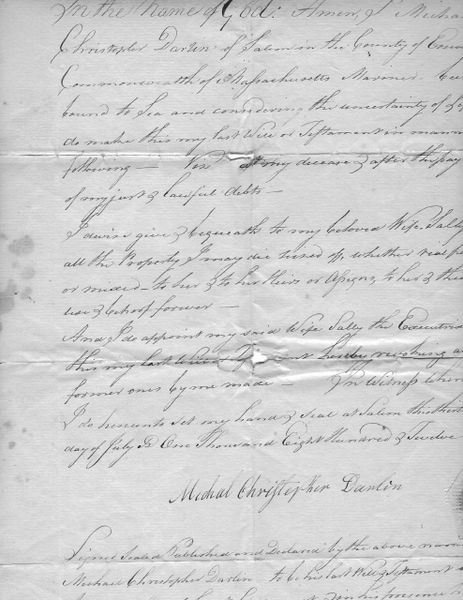 In the name of God: Amen, I Micha
Christopher Darlin of Salem in the County of Essex
Commonwealth of Massachusetts Mariner. be
bound to Sea and considering the uncertainty of
do make this my last Will or Testament in mann
following — Viz at my decease & after the pay
of my just & lawful debts —
I devise give & bequeath to my beloved Wife Sally
all the Property I may die seized of, whether real
or mixed — to her & to her Heirs or Assigns, to her & their
use & behoof forever —
And I do appoint my said Wife Sally the Executrix
this my last Will & Testament hereby revoking a
former ones by me made — In Witness Where
I do hereunto set my hand & Seal at Salem this
day of July AD One Thousand Eight Hundred & Twelve
Michal Christopher Darlin
Signed Sealed Published and Declared by the above name
Michael Christopher Darlin to be his last Will & Testament
in his presence